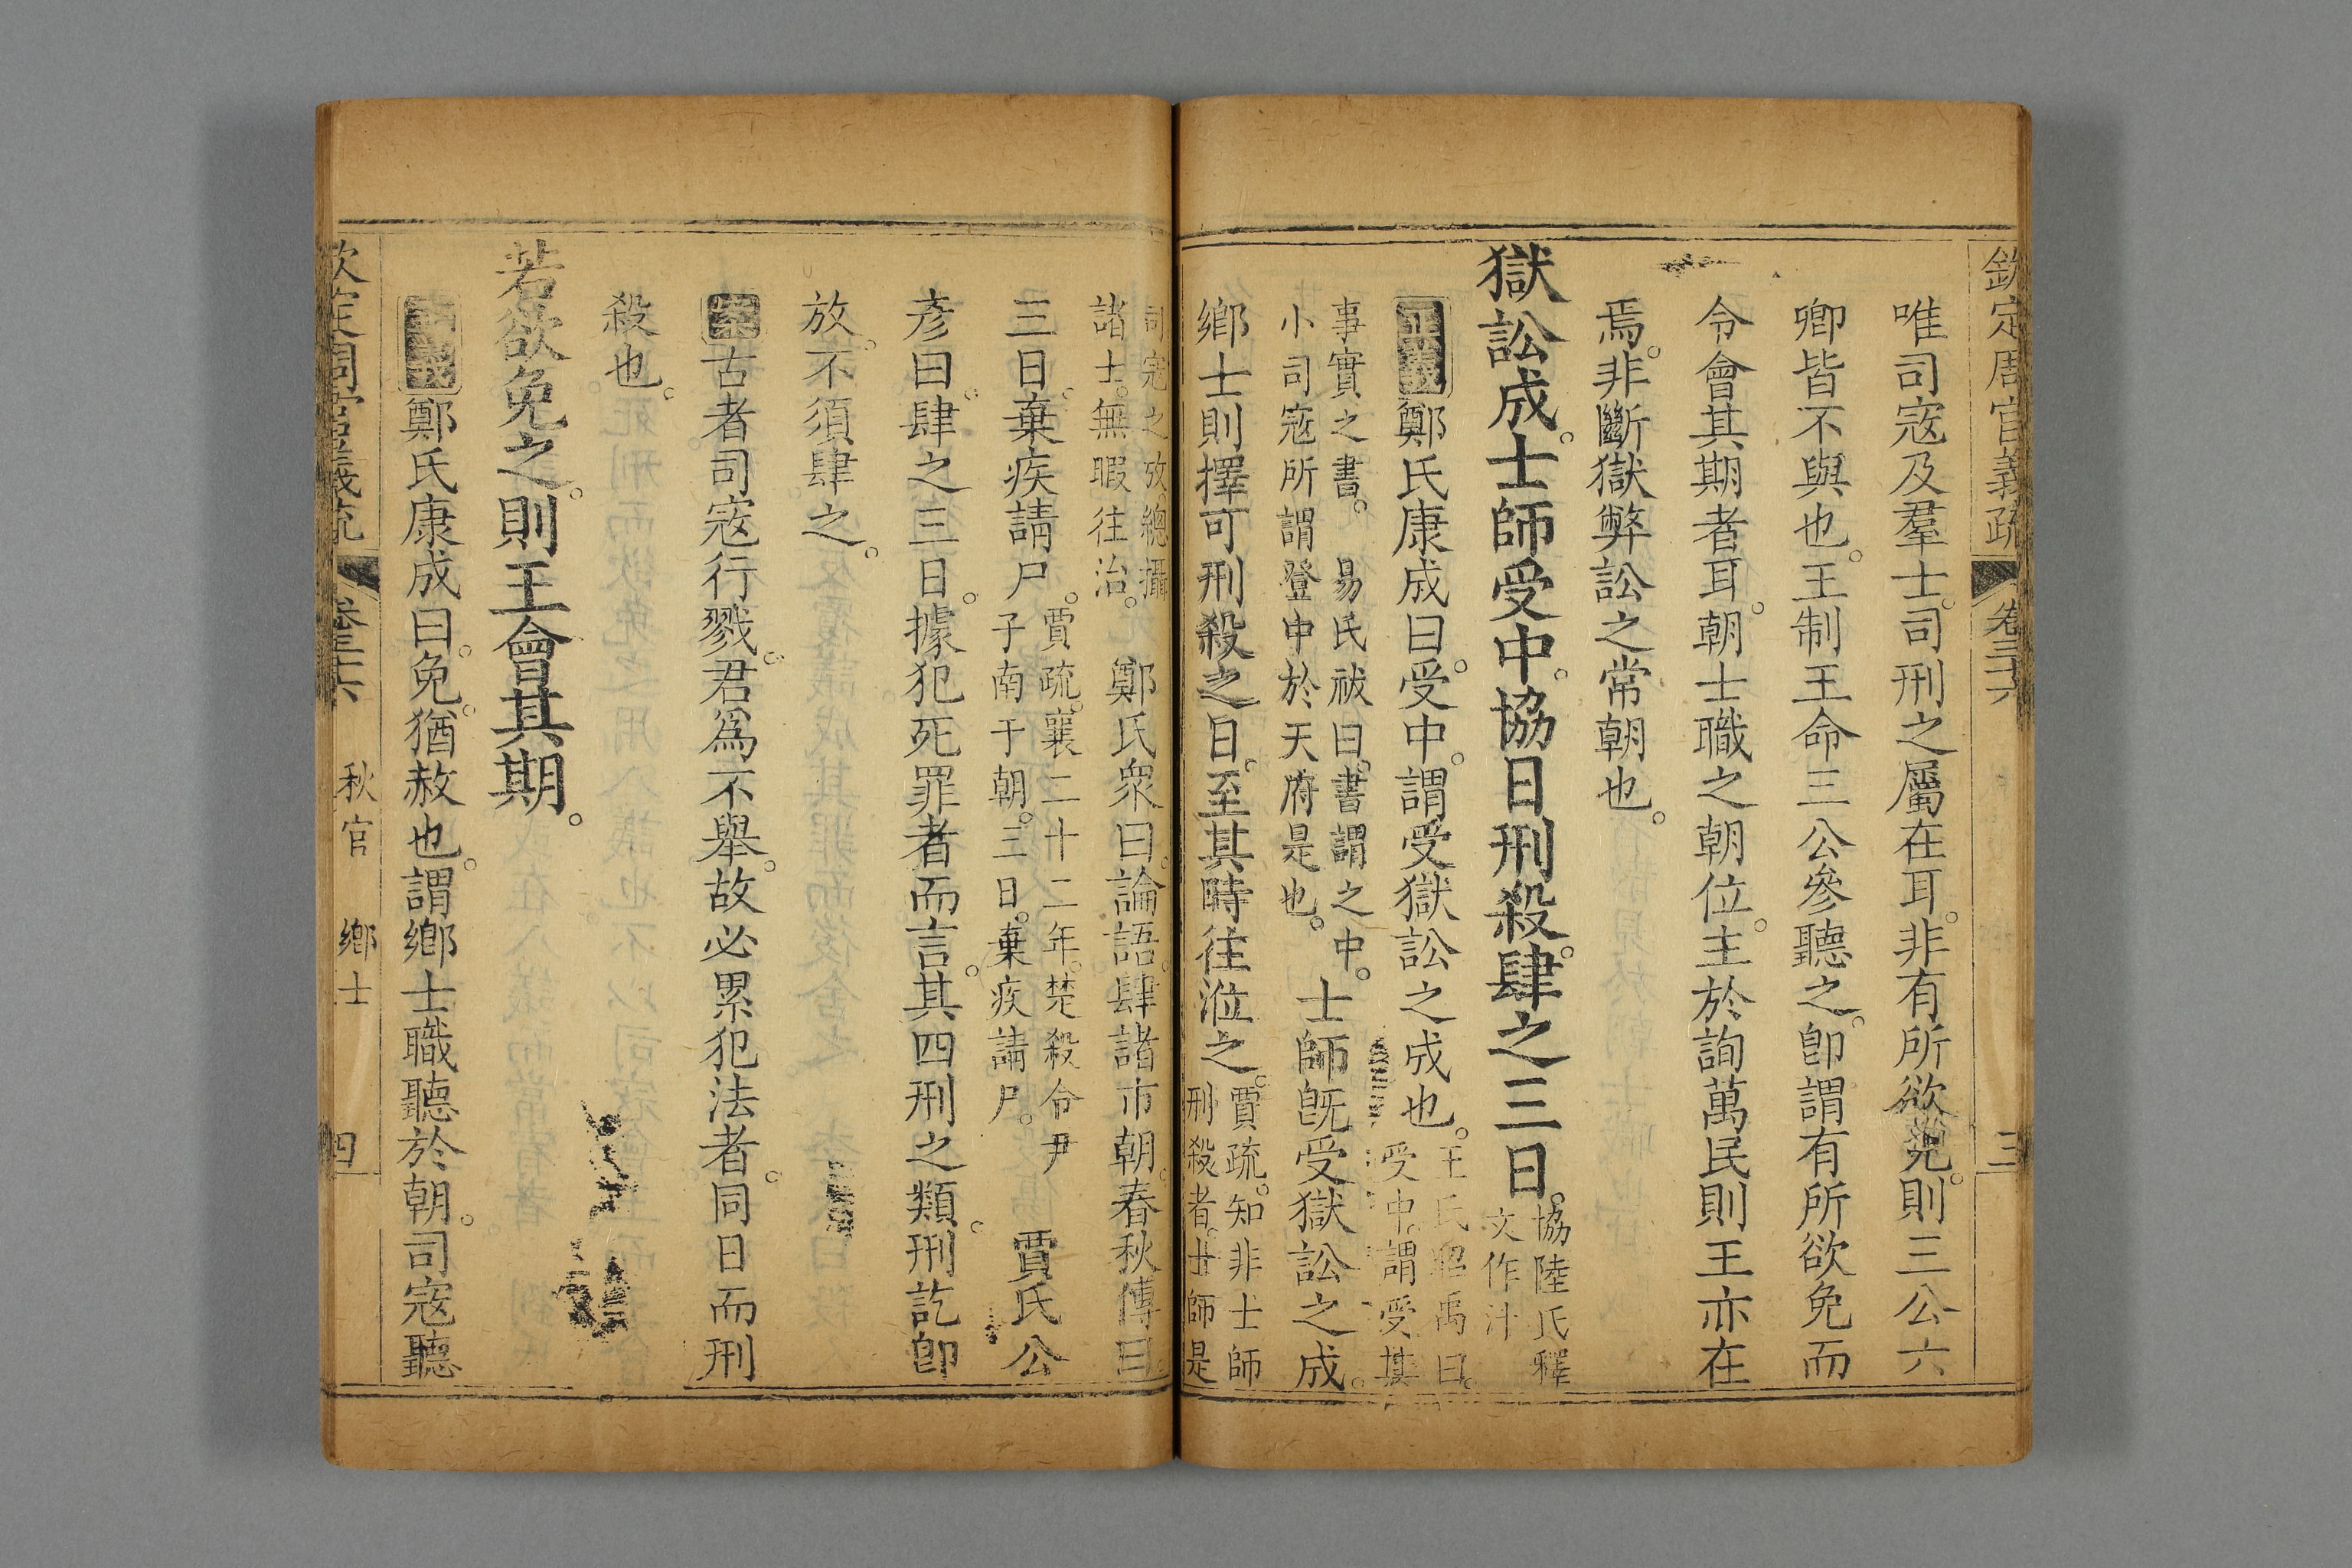 欽定周官義疏 卷三十六 三
唯司寇及羣士。司刑之屬在耳。非有所欲免。則三公六
卿皆不與也。王制王命三公參聽之。卽謂有所欲免而
令會其期者耳。朝士職之朝位。主於詢萬民則王亦在
焉。非斷獄弊訟之常朝也。
獄訟成。士師受中。協日刑殺。肆之三日。協陸氏釋
文作汁
正義鄭氏康成曰。受中。謂受獄訟之成也。王氏昭禹曰。
受中。謂受其
事實之書。 易氏祓曰。書謂之中。
小司寇所謂登中於天府是也。
士師旣受獄訟之成。
鄉士則擇可刑殺之日。至其時往涖之。賈疏。知非士師
刑殺者。士師是
司寇之攷。總攝
諸士。無暇往治。
鄭氏衆曰。論語。肆諸市朝。春秋傳曰
三日。棄疾請尸。賈疏。襄二十二年。楚殺令尹
子南于朝。三日。棄疾請尸。
賈氏公
彥曰。肆之三日。據犯死罪者而言。其四刑之類。刑訖卽
放。不須肆之。
案古者司寇行戮。君爲不舉。故必累犯法者。同日而刑
殺也。
若欲免之。則王會其期。
正義鄭氏康成曰。免。猶赦也。謂鄉士職聽於朝。司寇聽
欽定周官義疏 卷三十六 秋官 鄉士 四